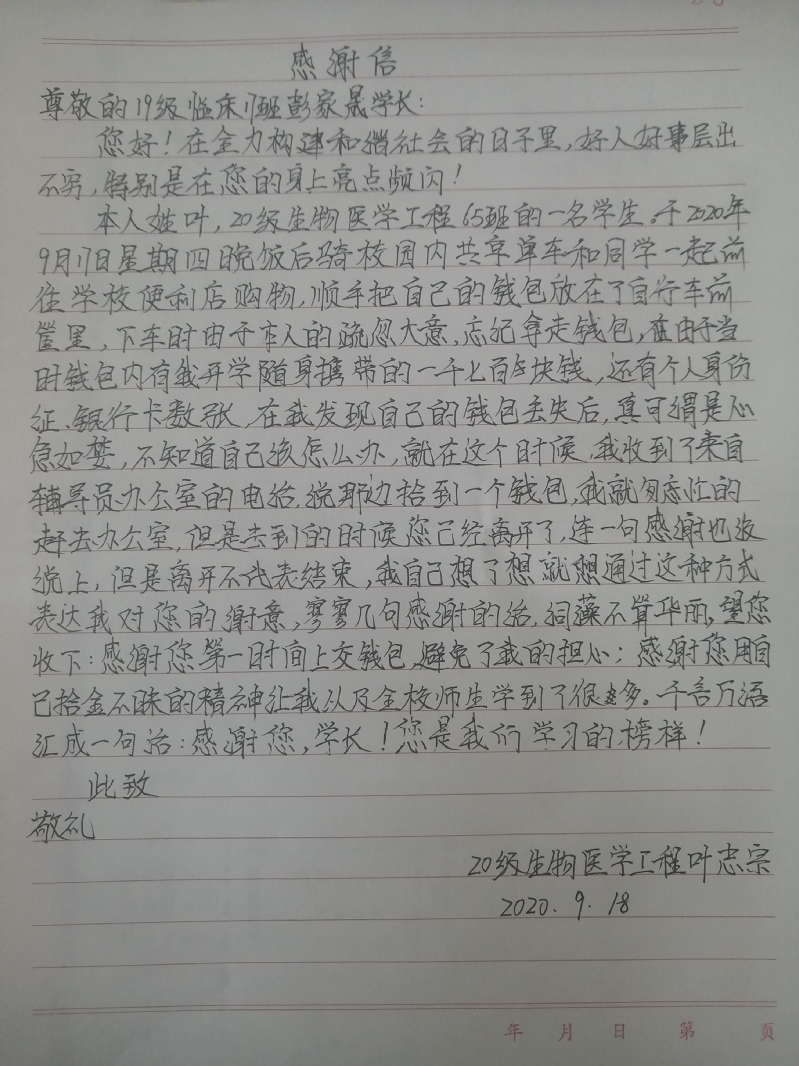 感谢信
尊敬的19级临床17班彭家晟学长:
您好!在全力构建和谐社会的日子里,好人好事层出
不穷,特别是在您的身上亮点频闪!
本人姓叶,20级生物医学工程65班的一名学生。于2020年
9月17日星期四晚饭后骑校园内共享单车和同学一起前
往学校便利店购物,顺手把自己的钱包放在了自行车前
筐里,下车时由于本人的疏忽大意,忘记拿走钱包,由于当
时钱包内有我开学随身携带的一千七百5块钱,还有个人身份
证、银行卡数张,在我发现自己的钱包丢失后,真可谓是心
急如焚,不知道自己该怎么办,就在这个时候,我收到了来自
辅导员办公室的电话,说那边拾到一个钱包,我就匆忘忙的
赶去办公室,但是去到的时候您已经离开了,连一句感谢也没
说上,但是离开不代表结束,我自己想了想就想通过这种方式
表达我对您的谢意,寥寥几句感谢的话,词藻不算华丽,望您
收下:感谢您第一时间上交钱包,避免了我的担心;感谢您用自
己拾金不昧的精神让我以及全校师生学到了很多。千言万语
汇成一句话:感谢您,学长!您是我们学习的榜样!
此致
敬礼
20级生物医学工程叶志宗
2020.9.18
年 月 日 第 页